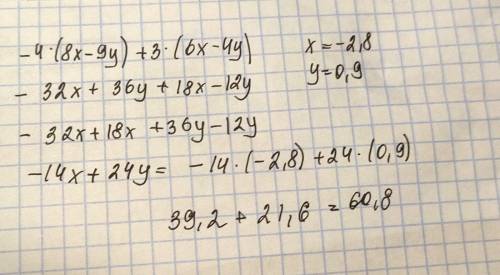 -4·(8x-9y)+3·(6x-4y)
x=-2,8
y=0,9
- 32x+ 36y+18x-12y
- 32x+18x +36y-12y
-14x+24y= -14·(-2,8)+24·(0,9)
39,2+21,6 = 60,8